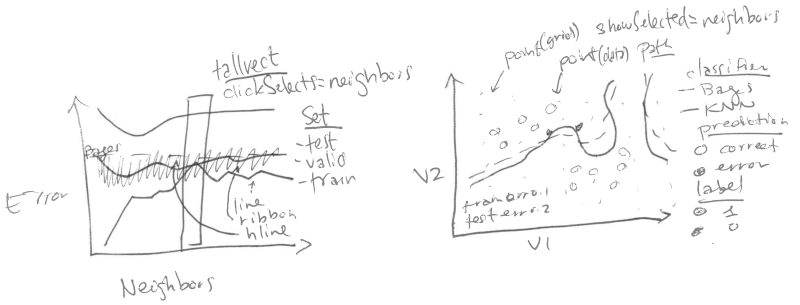 tallrect
clickSelects=neighbors
Set
- test
- valid
- train
Bayes
Error
line
ribbon
hline
Neighbors
showSelected=neighbors
point(grid)
point(data)
path
classifier
- Bayes
- KNN
prediction
correct
error
label
1
0
V2
train error .1
test error .2
V1